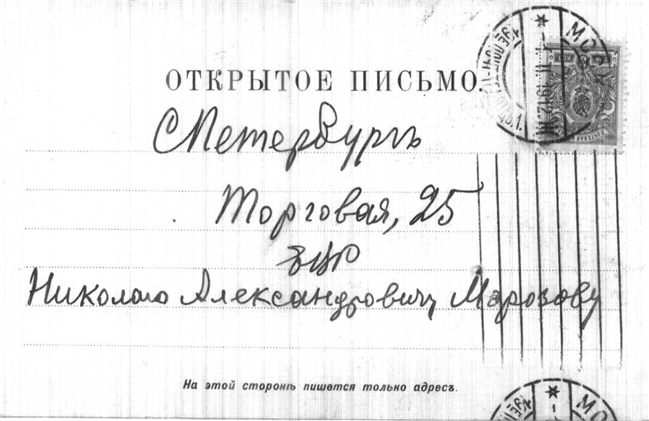 ОТКРЫТОЕ ПИСЬМО.
МОС
1912
СПетербургъ
Торговая, 25
ЕВР
Николаю Александровичу Марозову
На этой сторонѣ пишется только адресъ.
МО